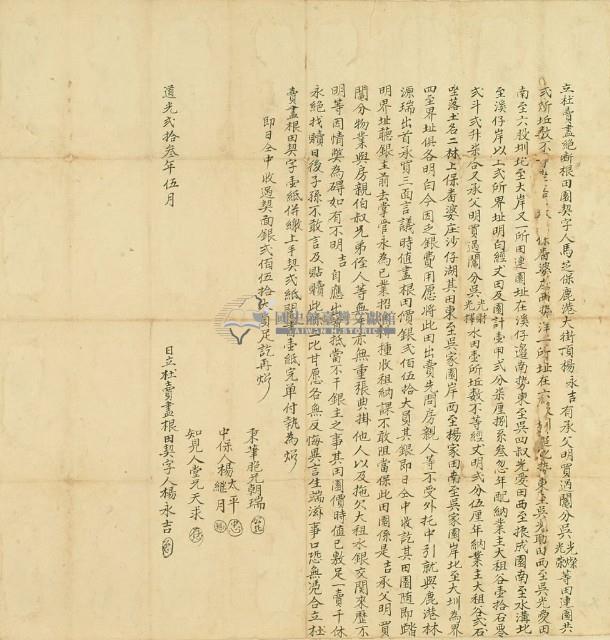 立杜賣盡絕断根田園契字人馬芝保鹿港大街頂楊永吉有承父明買過鬮分吳光燦光彩等田連園共
弍所坵数不 保番婆庄 洋一所址在 南勢東至吳光取田西至吳光愛田
南至六股圳北至大岸又一所田連園址在溪仔邊南勢東至吳四叔光愛田西至振成園南至水溝北
至溪仔岸以上弍所界址明白經丈田及園計壹甲弍分柒厘捌系叁忽年配納業主大租谷壹拾石零
弍斗弍升柒合又承父明買過鬮分吳光謝光擇水田壹所坵数不等經丈明弍分伍厘年納業主大租谷弍石
坐落土名二林上保番婆庄沙仔湖其田東至吳家園岸西至楊家田南至吳家園岸北至大圳為界
四至界址俱各明白今因乏銀費用愿將此田出賣先問房親人等不受外托中引就與鹿港林
源瑞出首承買三面言議時值盡根田價銀弍佰伍拾大員其銀即日仝中收訖其田園隨即踏
明界址聽銀主前去掌管永為己業招 耕種收租納課不敢阻當保此田園係是吉承父明買
鬮分物業與房親伯叔兄弟侄人等無 亦無重張典掛他人以及拖欠大租水銀交關來歷不
明等因情獘為碍如有不明吉自應出 抵當不干銀主之事其田園價時值已敷足一賣千休
永絕找贖日後子孫不敢言及貼贖此 比甘愿各無反悔異言生端滋事口恐無凴合立杜
賣盡根田契字壹紙併繳上手契弍紙鬮書壹紙完单付執為炤
即日仝中收過契面銀弍佰伍拾大員足訖再炤
秉筆胞兄朝瑞
中保人楊太平
繼月
知見人堂兄天來
道光弍拾叁年伍月 日立杜賣盡根田契字人楊永吉
國史館臺灣文獻館
TAIWAN HISTORICA